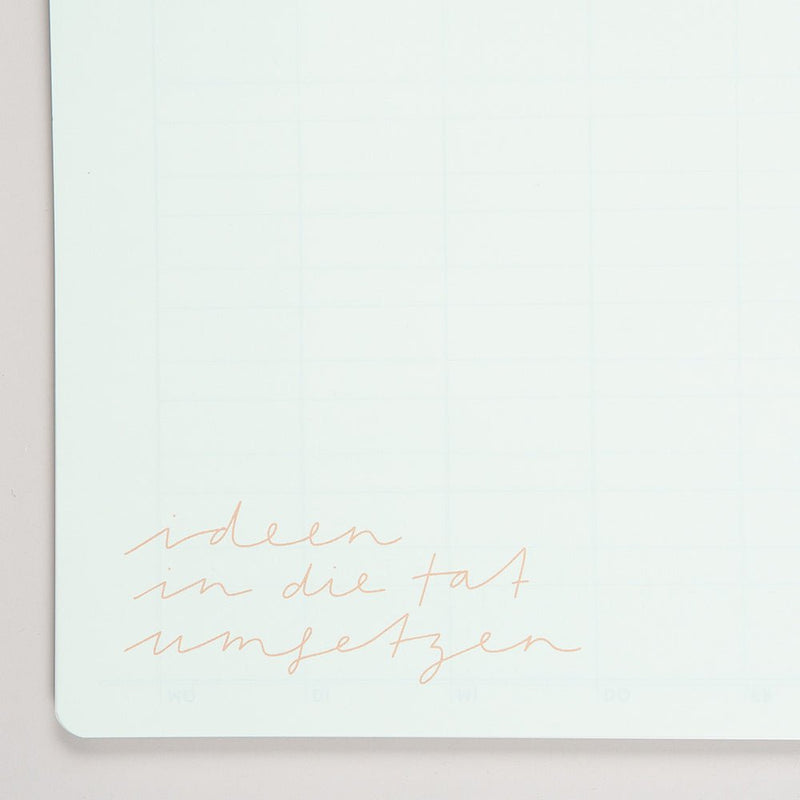 ideen
in die tat
umsetzen
MO DI MI DO FR